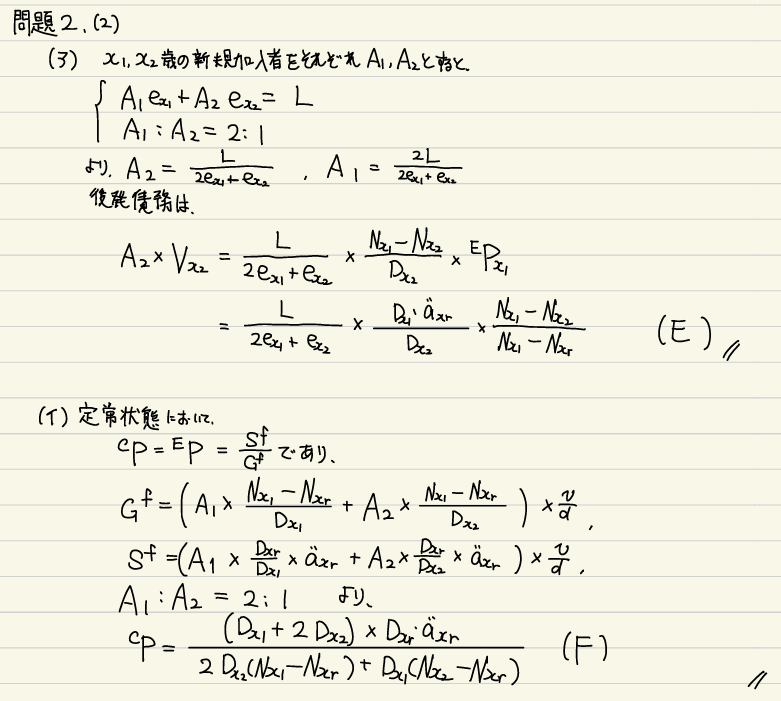 問題2.(2)
(ア) x₁, x₂歳の新規加入者をそれぞれ A₁, A₂とすると、
{ A₁ e_{x₁} + A₂ e_{x₂} = L
A₁ : A₂ = 2 : 1
より、A₂ = \frac{L}{2e_{x₁} + e_{x₂}} , A₁ = \frac{2L}{2e_{x₁} + e_{x₂}}
後発債務は、
A₂ × V_{x₂} = \frac{L}{2e_{x₁} + e_{x₂}} × \frac{N_{x₁} - N_{x₂}}{D_{x₂}} × ^{E}P_{x₁}
= \frac{L}{2e_{x₁} + e_{x₂}} × \frac{D_{xr}·ä_{xr}}{D_{x₂}} × \frac{N_{x₁} - N_{x₂}}{N_{x₁} - N_{xr}} (E) //
(イ) 定常状態において、
^{C}P = ^{E}P = \frac{S^f}{G^f} であり、
G^f = ( A₁ × \frac{N_{x₁} - N_{xr}}{D_{x₁}} + A₂ × \frac{N_{x₁} - N_{xr}}{D_{x₂}} ) × \frac{v}{d} ,
S^f = ( A₁ × \frac{D_{xr}}{D_{x₁}} × ä_{xr} + A₂ × \frac{D_{xr}}{D_{x₂}} × ä_{xr} ) × \frac{v}{d} ,
A₁ : A₂ = 2 : 1 より、
^{C}P = \frac{(D_{x₁} + 2 D_{x₂}) × D_{xr}·ä_{xr}}{2 D_{x₂}(N_{x₁} - N_{xr}) + D_{x₁}(N_{x₂} - N_{xr})} (F)
//